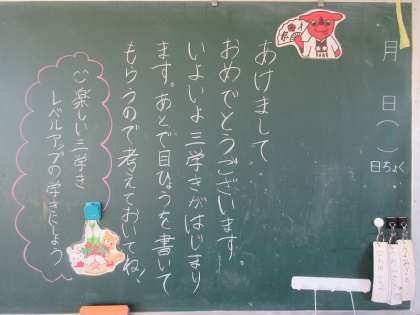 月
日（　）
日ちょく
あけまして
おめでとうございます。
いよいよ三学きがはじまり
ます。あとで目ひょうを書いて
もらうので考えておいてね！
楽しい三学き
レベルアップの学きにしよう